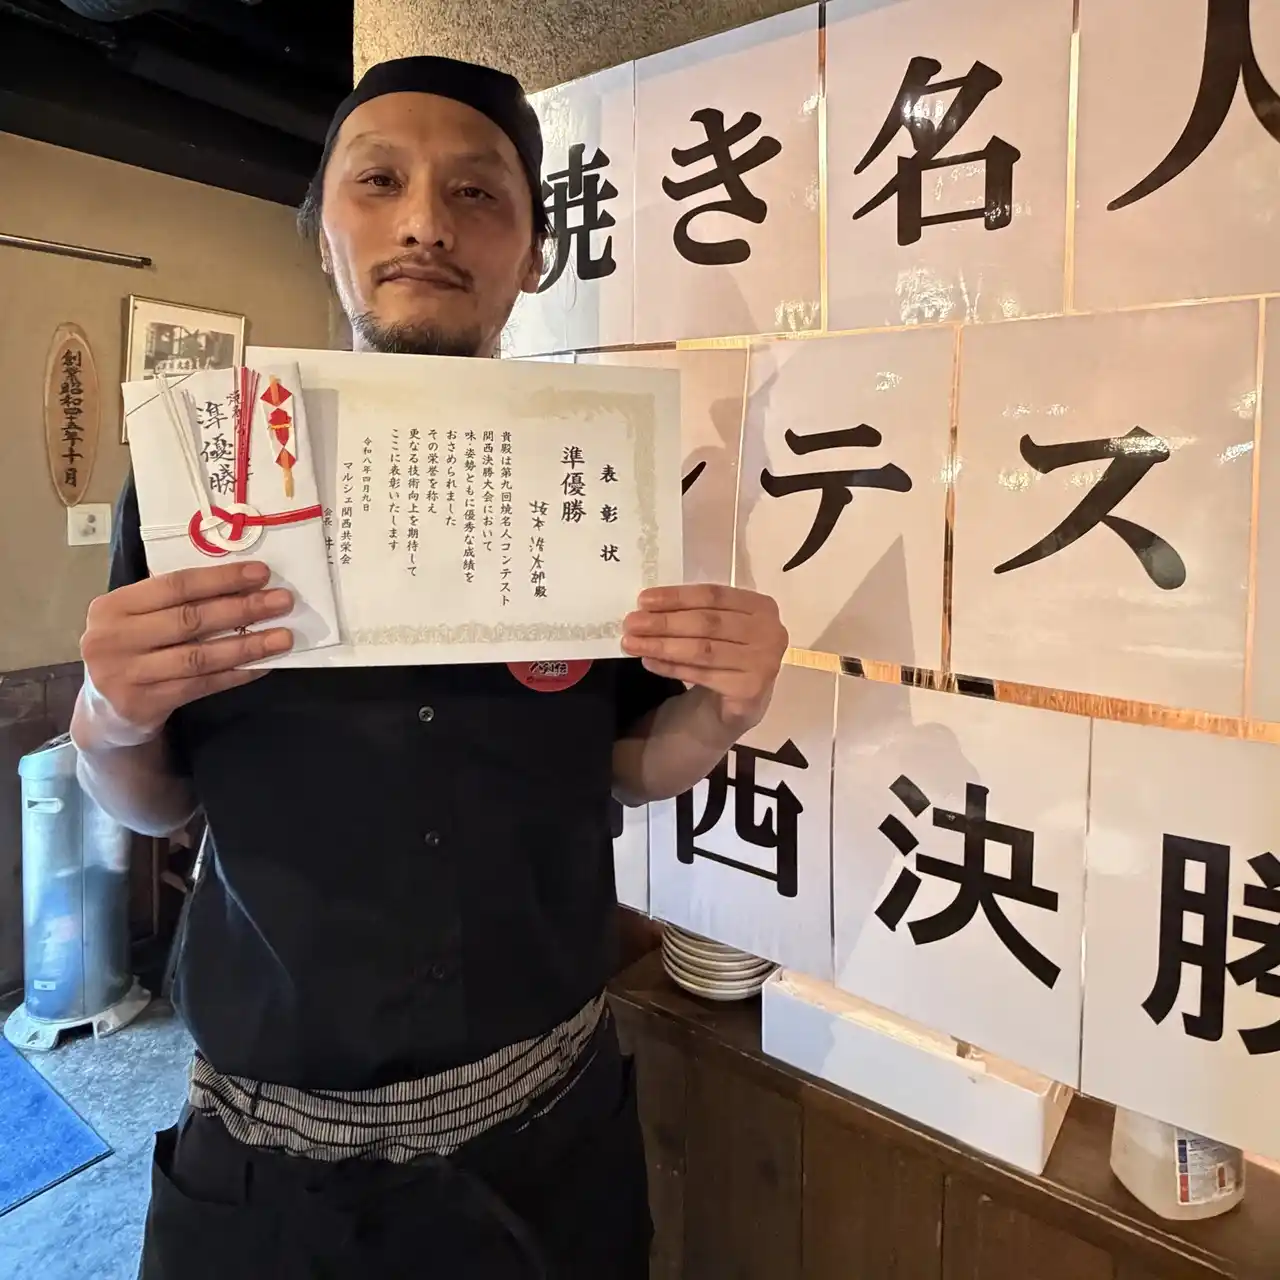 焼き名人
ンテス
西決勝
創業昭和四十五年十一月
準優勝
表彰状
準優勝
坂本 浩太郎殿
貴殿は第九回焼名人コンテスト
関西決勝大会において
味・姿勢ともに優秀な成績を
おさめられました
その栄誉を称え
更なる技術向上を期待して
ここに表彰いたします
令和八年四月九日
マルシェ関西共栄会
会長 井上
八剣伝